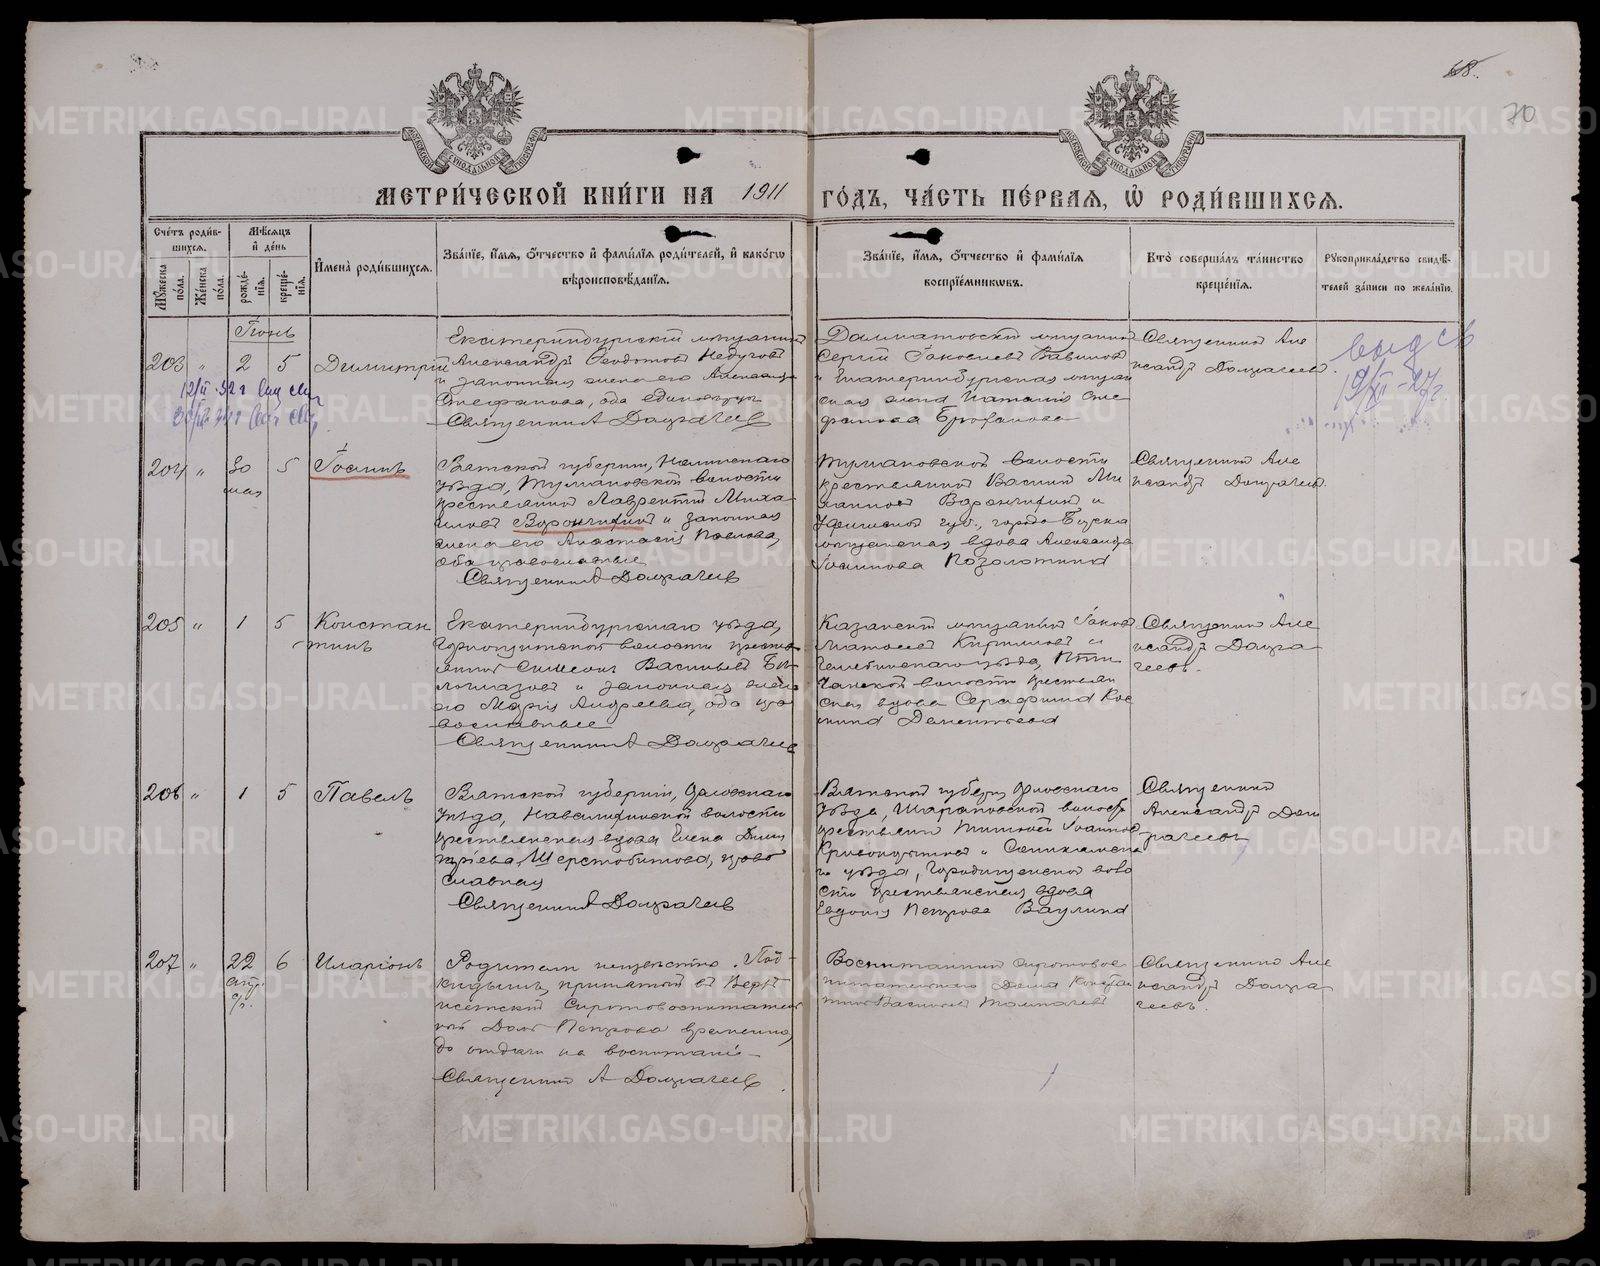 68.
70
МЕТРИ́ЧЕСКОЙ КНИ́ГИ НА 1911 ГО́ДЪ, ЧА́СТЬ ПЕ́РВАЯ, Ѡ҆ РОДИ́ВШИХСЯ.
Сче́тъ роди́в-
шихся.
Му́жеска по́ла.
Же́нска по́ла.
Мѣ́сяцъ
и҆ де́нь
рожде́-
нїя.
креще́-
нїя.
И҆мена̀ роди́вшихся.
Зва́нїе, и҆́мя, ѻ҆́тчество и҆ фами́лїя роди́телей, и҆ како́гѡ
вѣроисповѣ́данїя.
Зва́нїе, и҆́мя, ѻ҆́тчество и҆ фами́лїя
воспрїе́мникѡвъ.
Кто̀ соверша́лъ та́инство
креще́нїя.
Рꙋкоприкла́дство свидѣ́-
телей за́писи по жела́нїю.
Іюнь
203 " 2 5 Димитрій
Екатеринбургскій мѣщанинъ
Александръ Ѳеодотовъ
и законная жена его Александра
Стефанова, оба единовѣрцы
Священникъ А Долгачевъ
Далматовскій мѣщанинъ
Сергій Іаковлевъ Вавиловъ
и Екатеринбургская мѣщан
ская жена Наталія Сте
фанова
Священникъ Але
ксандръ Долгачевъ.
выд св
19/XII-27г.
204 " 30 5 Іоаннъ
мая
Вятской губерніи, Нолинскаго
уѣзда, Тумановской волости
крестьянинъ Лаврентій Миха
иловъ Ворончихинъ и законная
жена его Анастасія Павлова,
оба православные
Священникъ А Долгачевъ
Тумановской волости
крестьянинъ Василій Ми
хаиловъ Ворончихинъ и
Уфимской губ., города Бирска
мѣщанская вдова Александра
Іоаннова Позолотина
Священникъ Але
ксандръ Долгачевъ
205 " 1 5 Констан
тинъ
Екатеринбургскаго уѣзда,
волости кресть
янинъ Симеонъ Васильевъ Бѣ
логлазовъ и законная жена
его Марія Андреева, оба пра
вославные
Священникъ А Долгачевъ
Казанскій мѣщанинъ Іаковъ
Матвеевъ Кирилловъ и
Челябинскаго уѣзда, Пти
чанской волости крестьян
ская вдова Серафима Кос
мина Дементьева
Священникъ Але
ксандръ Долга
чевъ.
206 " 1 5 Павелъ
Вятской губерніи, Орловскаго
уѣзда, Навалихинской волости
крестьянская вдова Елена Дими
тріева Шерстобитова, право
славная
Священникъ А Долгачевъ
Вятской губерніи Орловскаго
уѣзда, Шараповской волости
крестьянинъ Тимофей Іоанновъ
и Соликамска
го уѣзда, Городищенской воло
сти крестьянская вдова
Евдокія Петрова Ваулина
Священникъ
Александръ Дол
гачевъ
207 " 22 6 Иларіонъ
апр.
Родители неизвѣстны. Под-
кидышъ, принятый въ Верхъ
исетскій Сиротовоспитатель
ный Домъ Петрова временно,
до отдачи на воспитаніе
Священникъ А Долгачевъ
Воспитанникъ сиротовос
питательнаго Дома Констан
тинъ Васильевъ Толмачевъ
Священникъ Але
ксандръ Долга
чевъ.
METRIKI.GASO-URAL.RU